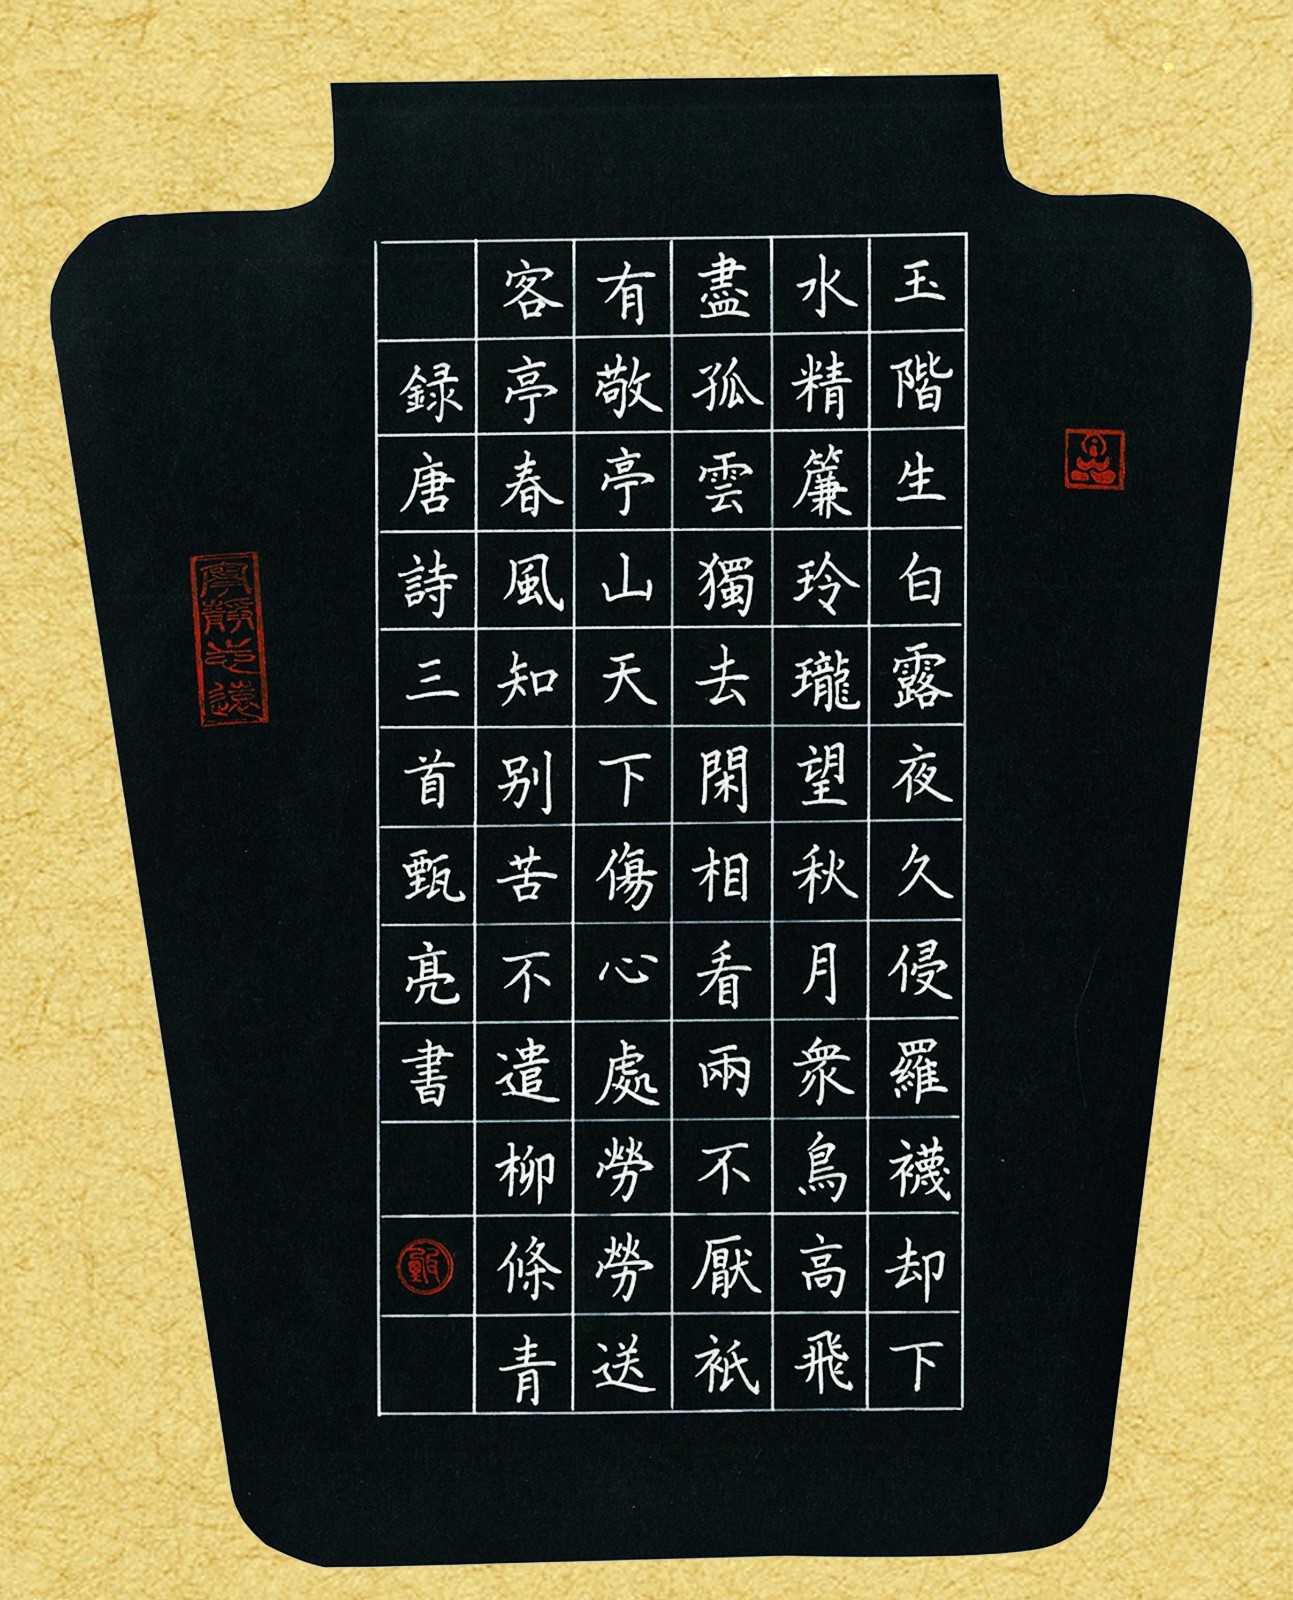 玉階生白露夜久侵羅襪却下
水精簾玲瓏望秋月衆鳥高飛
盡孤雲獨去閑相看兩不厭祇
有敬亭山天下傷心處勞勞送
客亭春風知别苦不遣柳條青
録唐詩三首甄亮書
甄
寧靜志遠